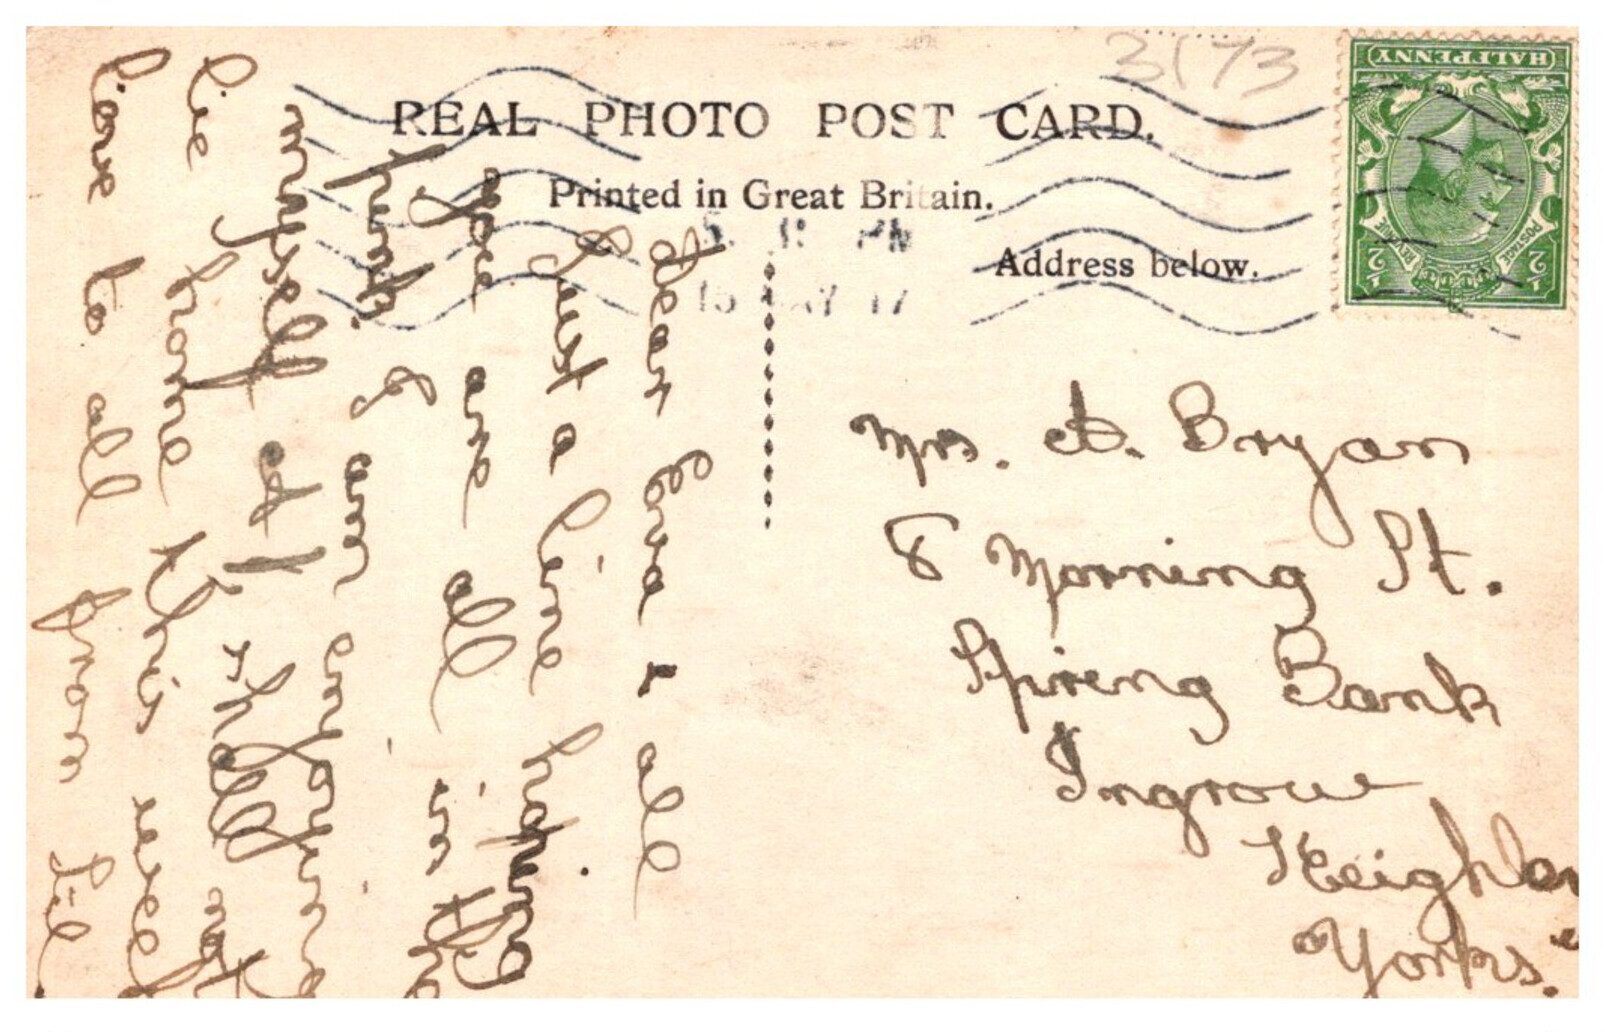 3173
HALFPENNY
POSTAGE
REVENUE
½ ½
REAL PHOTO POST CARD.
Printed in Great Britain.
Address below.
PM
17
Dear Eva & all
Just a line hoping
you are all in the
pink. I am enjoying
myself shall not
be home this week
Love to all from Lil
Mrs. A. Bryan
8 Morning St.
Spireng Bank
Ingrow
Keighley
Yorks.